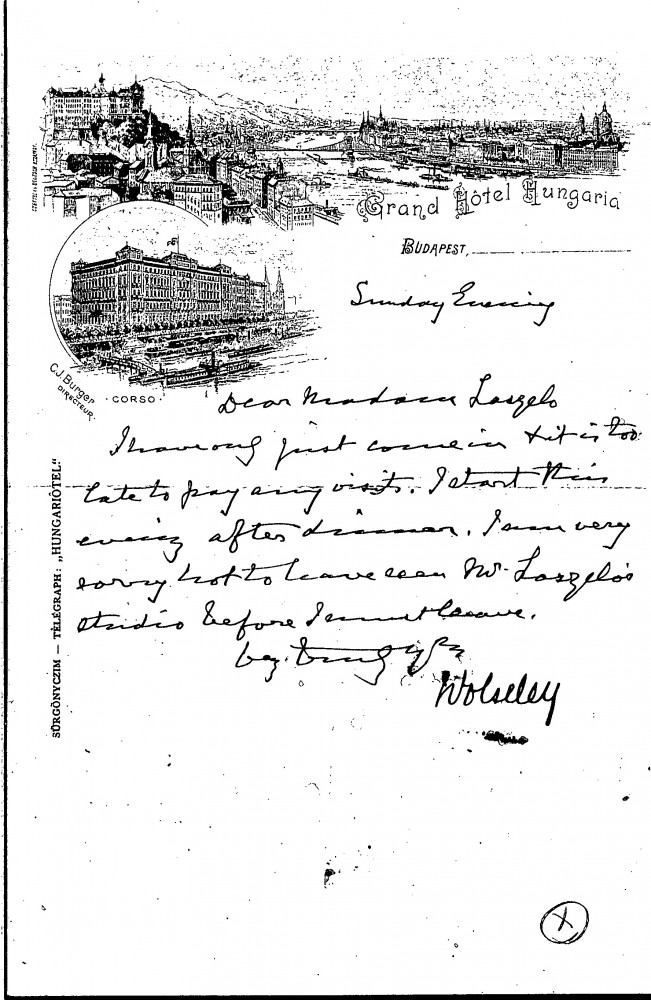 Grand Hôtel Hungaria
BUDAPEST,
Sunday Evening
C.J. Burger
DIRECTEUR.
CORSO
SÜRGÖNYCZIM — TÉLÉGRAPH: „HUNGARIÔTEL"
Dear Madam Laszelo
I have only just come in & it is too
late to pay any visits. I start this
evening after dinner. I am very
sorry not to have seen Mr. Laszelo's
studio before I must leave.
Very truly yrs
Wolseley
X